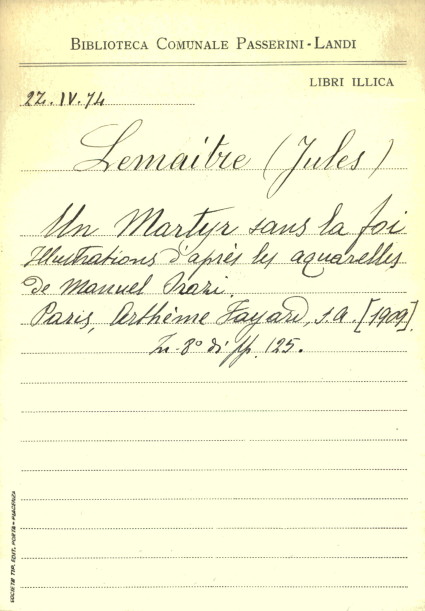 BIBLIOTECA COMUNALE PASSERINI-LANDI
LIBRI ILLICA
2Z.IV.74
Lemaitre (Jules)
Un Martyr sans la foi
Illustrations d'après les aquarelles
de Manuel Orazi.
Paris, Arthème Fayard, s.a. [1909].
In-8° di pp. 125.
SOCIETÀ TIP. EDIT. PORTA - PIACENZA